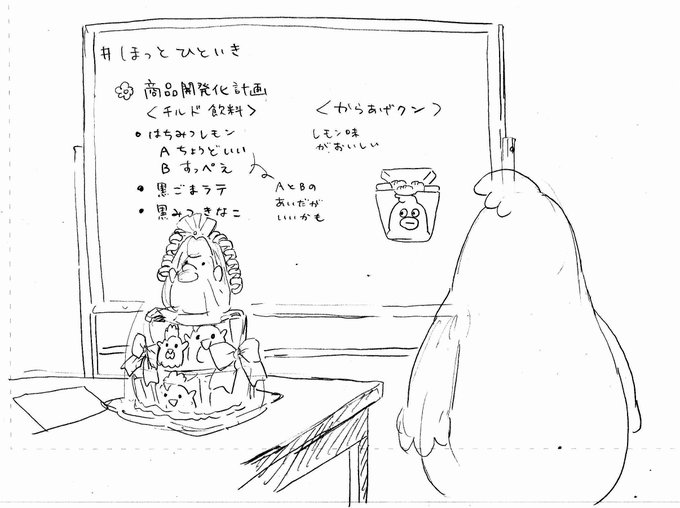 #ほっとひといき
商品開発化計画
〈チルド飲料〉
・はちみつレモン
A ちょうどいい
B すっぺえ
・黒ごまラテ
・黒みつきなこ
AとBの
あいだが
いいかも
〈からあげクン〉
レモン味
がおいしい